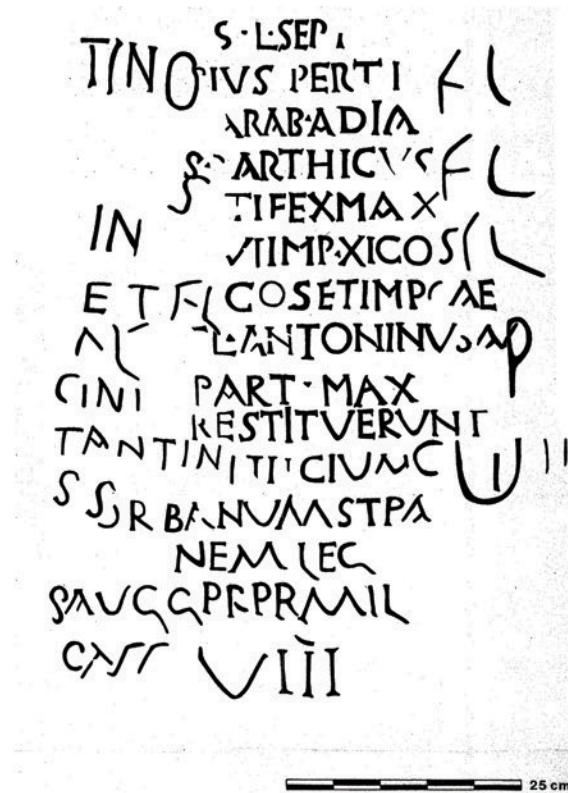 S · L·SEP
TINO IVS PERTI FL
ARAB·ADIA
S· ARTHICVS FL
S TIFEXMAX
IN VIIMP·XICOS CL
ET FL COSETIMP AE
AL L·ANTONINV AP
CINI PART·MAX
RESTITVERVNT
TANTINI CIUM
S S URBANUMSTPA
NEM LEG
PAUGGPRPRMIL
CAST VIII
25 cm